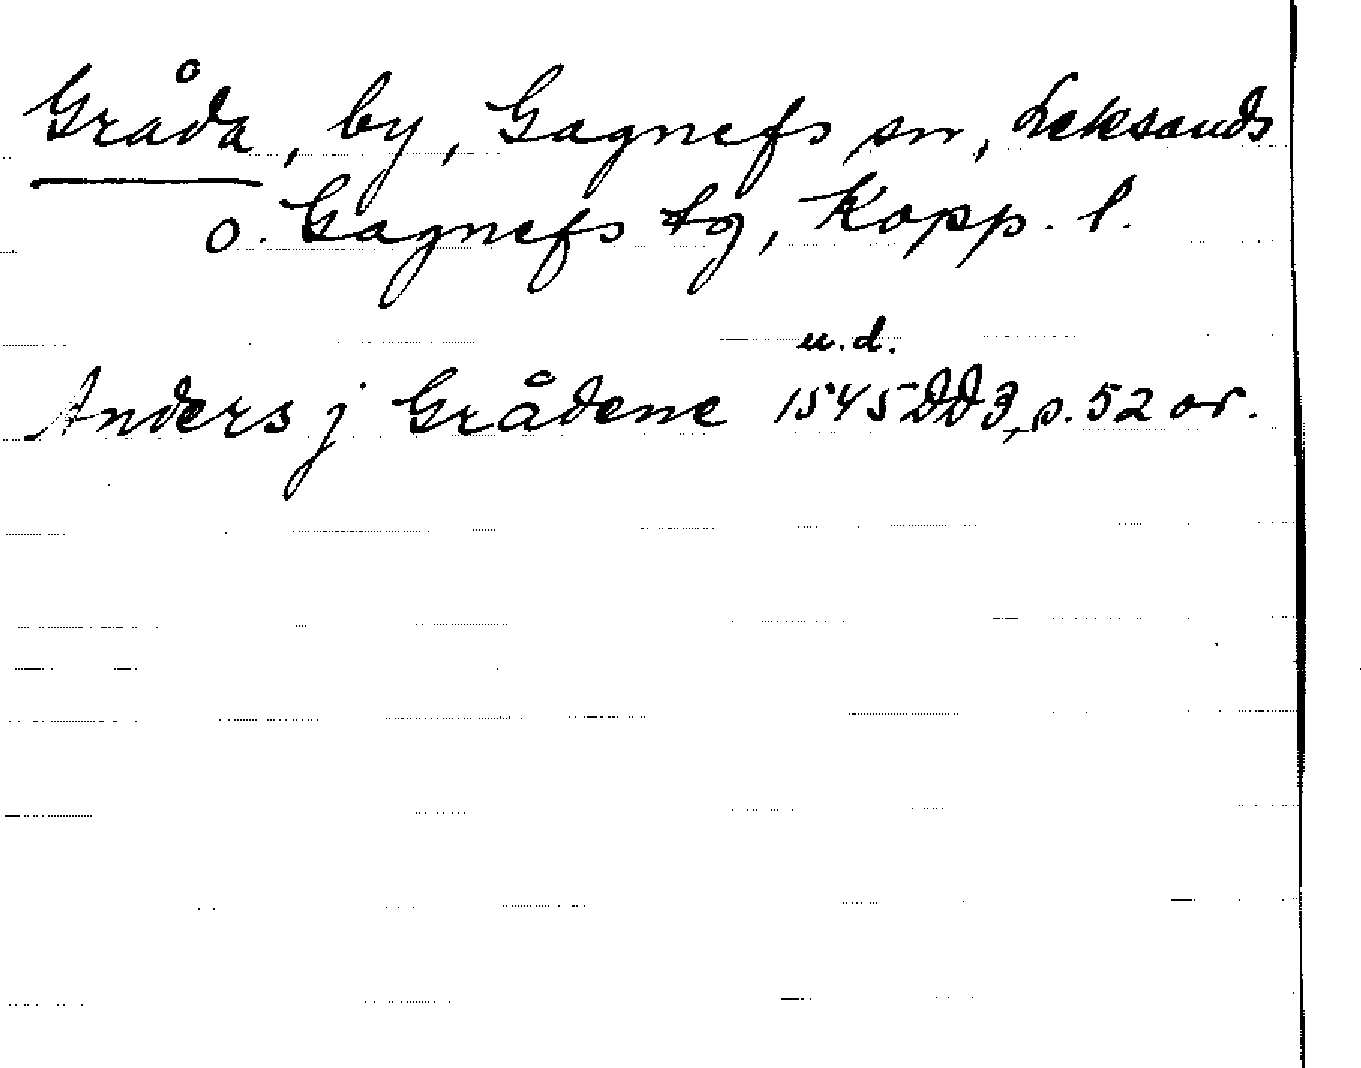 Gråda, by, Gagnefs sn, Leksands
o. Gagnefs tg, Kopp. l.
u.d.
Anders j Grådene 1545 DD3, s. 52 or.